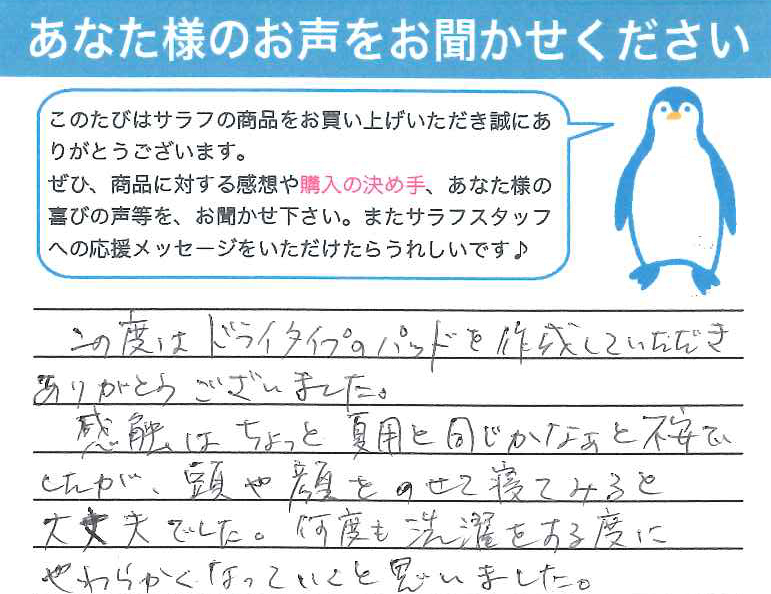 あなた様のお声をお聞かせください
このたびはサラフの商品をお買い上げいただき誠にあ
りがとうございます。
ぜひ、商品に対する感想や購入の決め手、あなた様の
喜びの声等を、お聞かせ下さい。またサラフスタッフ
への応援メッセージをいただけたらうれしいです♪
この度はドライタイプのパッドを作成していただき
ありがとうございました。
感触はちょっと夏用と同じかなぁと不安で
したが、頭や顔をのせて寝てみると
大丈夫でした。何度も洗濯をする度に
やわらかくなっていくと思いました。